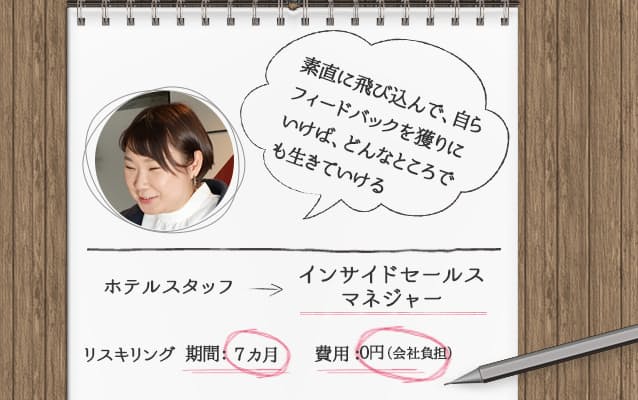 素直に飛び込んで、自ら
フィードバックを獲りに
いけば、どんなところで
も生きていける
ホテルスタッフ → インサイドセールス
マネジャー
リスキリング 期間：7カ月 費用：0円（会社負担）